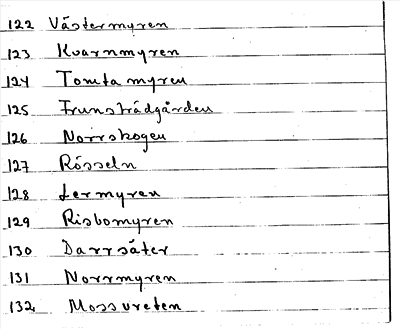 122 Västermyren
123 Kvarnmyren
124 Tomtamyren
125 Frunsträdgården
126 Norrskogen
127 Rösseln
128 Lermyren
129 Risbomyren
130 Darrsäter
131 Norrmyren
132 Mossvreten